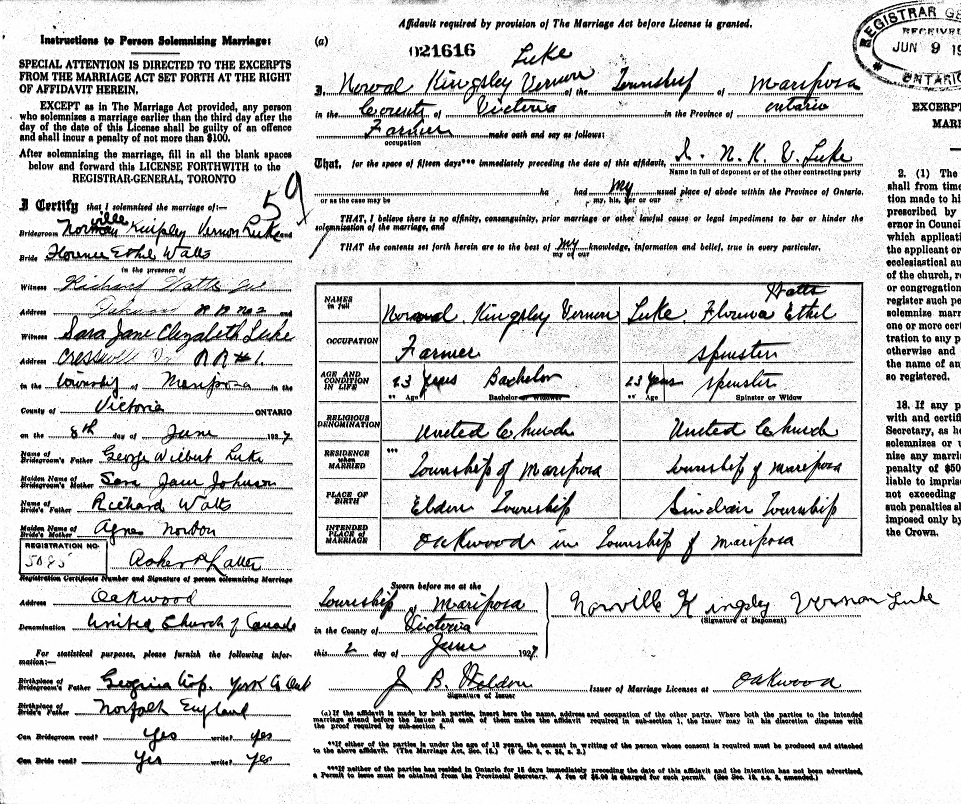 Affidavit required by provision of The Marriage Act before License is granted.
Instructions to Person Solemnizing Marriage:
SPECIAL ATTENTION IS DIRECTED TO THE EXCERPTS
FROM THE MARRIAGE ACT SET FORTH AT THE RIGHT
OF AFFIDAVIT HEREIN.
EXCEPT as in The Marriage Act provided, any person
who solemnizes a marriage earlier than the third day after the
day of the date of this License shall be guilty of an offence
and shall incur a penalty of not more than $100.
After solemnizing the marriage, fill in all the blank spaces
below and forward this LICENSE FORTHWITH to the
REGISTRAR-GENERAL, TORONTO
59
I Certify that I solemnized the marriage of:—
Bridegroom Norville Kingsley Vernon Luke and
Bride Florence Ethel Watts
in the presence of
Witness Richard Watts
Address R R no 2
Witness Sara Jane Elizabeth Luke
Address R R #1.
in the township of Mariposa in the
County of Victoria ONTARIO
on the 8th day of June 1927
Name of Bridegroom's Father George Wilbert Luke
Maiden Name of Bridegroom's Mother Sara Jane Johnson
Name of Bride's Father Richard Watts
Maiden Name of Bride's Mother Agnes Nordon
REGISTRATION NO.
5085
Registration Certificate Number and Signature of person solemnizing Marriage
Address Oakwood
Denomination United Church of Canada
For statistical purposes, please furnish the following infor-
mation:—
Birthplace of Bridegroom's Father Georgina Twp. York Co Ont
Birthplace of Bride's Father Norfolk England
Can Bridegroom read? Yes write? yes
Can Bride read? Yes write? yes
(a)
021616
Luke
I, Norval Kingsley Vernon of the Township of Mariposa
in the County of Victoria in the Province of Ontario
Farmer make oath and say as follows:
occupation
That, for the space of fifteen days*** immediately preceding the date of this affidavit, I. N. K. V. Luke
Name in full of deponent or of the other contracting party
ha had my usual place of abode within the Province of Ontario.
or as the case may be my, his, her or our
THAT, I believe there is no affinity, consanguinity, prior marriage or other lawful cause or legal impediment to bar or hinder the
solemnization of the marriage, and
THAT the contents set forth herein are to the best of my knowledge, information and belief, true in every particular.
my or our
NAMES in full Norval Kingsley Vernon Luke Florence Ethel Watts
OCCUPATION Farmer spinster
AGE AND CONDITION IN LIFE 23 Years Bachelor 23 Years spinster
** Age Bachelor or Widower ** Age Spinster or Widow
RELIGIOUS DENOMINATION United Church United Church
RESIDENCE when MARRIED *** Township of Mariposa Township of Mariposa
PLACE OF BIRTH Eldon Township Sinclair Township
INTENDED PLACE OF MARRIAGE Oakwood in Township of Mariposa
Sworn before me at the
Township of Mariposa
in the County of Victoria
this 2 day of June 1927.
Norville Kingsley Vernon Luke
(Signature of Deponent)
J B Weldon Issuer of Marriage Licenses at Oakwood
Signature of Issuer
(a) If the affidavit is made by both parties, insert here the name, address and occupation of the other party. Where both the parties to the intended
marriage attend before the Issuer and each of them makes the affidavit required in sub-section 1, the Issuer may in his discretion dispense with
the proof required by sub-section 5.
**If either of the parties is under the age of 18 years, the consent in writing of the person whose consent is required must be produced and attached
to the above affidavit. (The Marriage Act, Sec. 15.)
***If neither of the parties has resided in Ontario for 15 days immediately preceding the date of this affidavit and the intention has not been advertised,
a Permit to issue must be obtained from the Provincial Secretary. A fee of is charged for such permit.
REGISTRAR GE
RECEIVED
JUN 9 19
ONTARIO
EXCERPT
MARR
2. (1) The
shall from time
tion made to hi
prescribed by
ernor in Council
which applicati
the applicant or
ecclesiastical au
of the church, re
or congregation
register such pe
solemnize marr
one or more cert
tration to any p
otherwise and
the name of any
so registered.
18. If any p
with and certifi
Secretary, as he
solemnizes or u
nize any marria
penalty of $50
liable to impriso
not exceeding
such penalties al
imposed only by
the Crown.